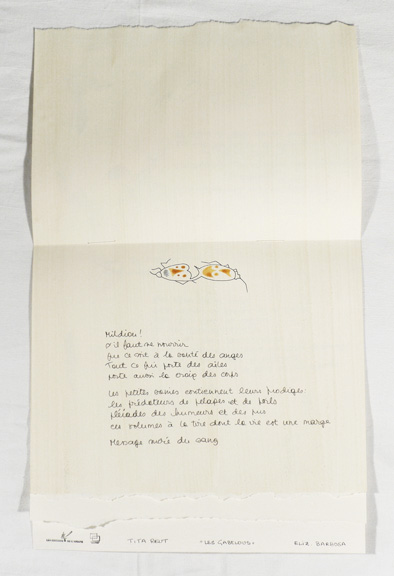 Mildiou!
s'il faut se nourrir
que ce soit à la santé des anges
Tout ce qui porte des ailes
porte aussi la croix des corps
Les petites vies contiennent leurs prodiges:
les prédateurs de pelages et de poils
pléiades des humeurs et des pus
ces volumes à ce titre dont la vie est une marge
Message du sang
TITA REUT
"LES GABELOUS"
ELIZ BARBOSA